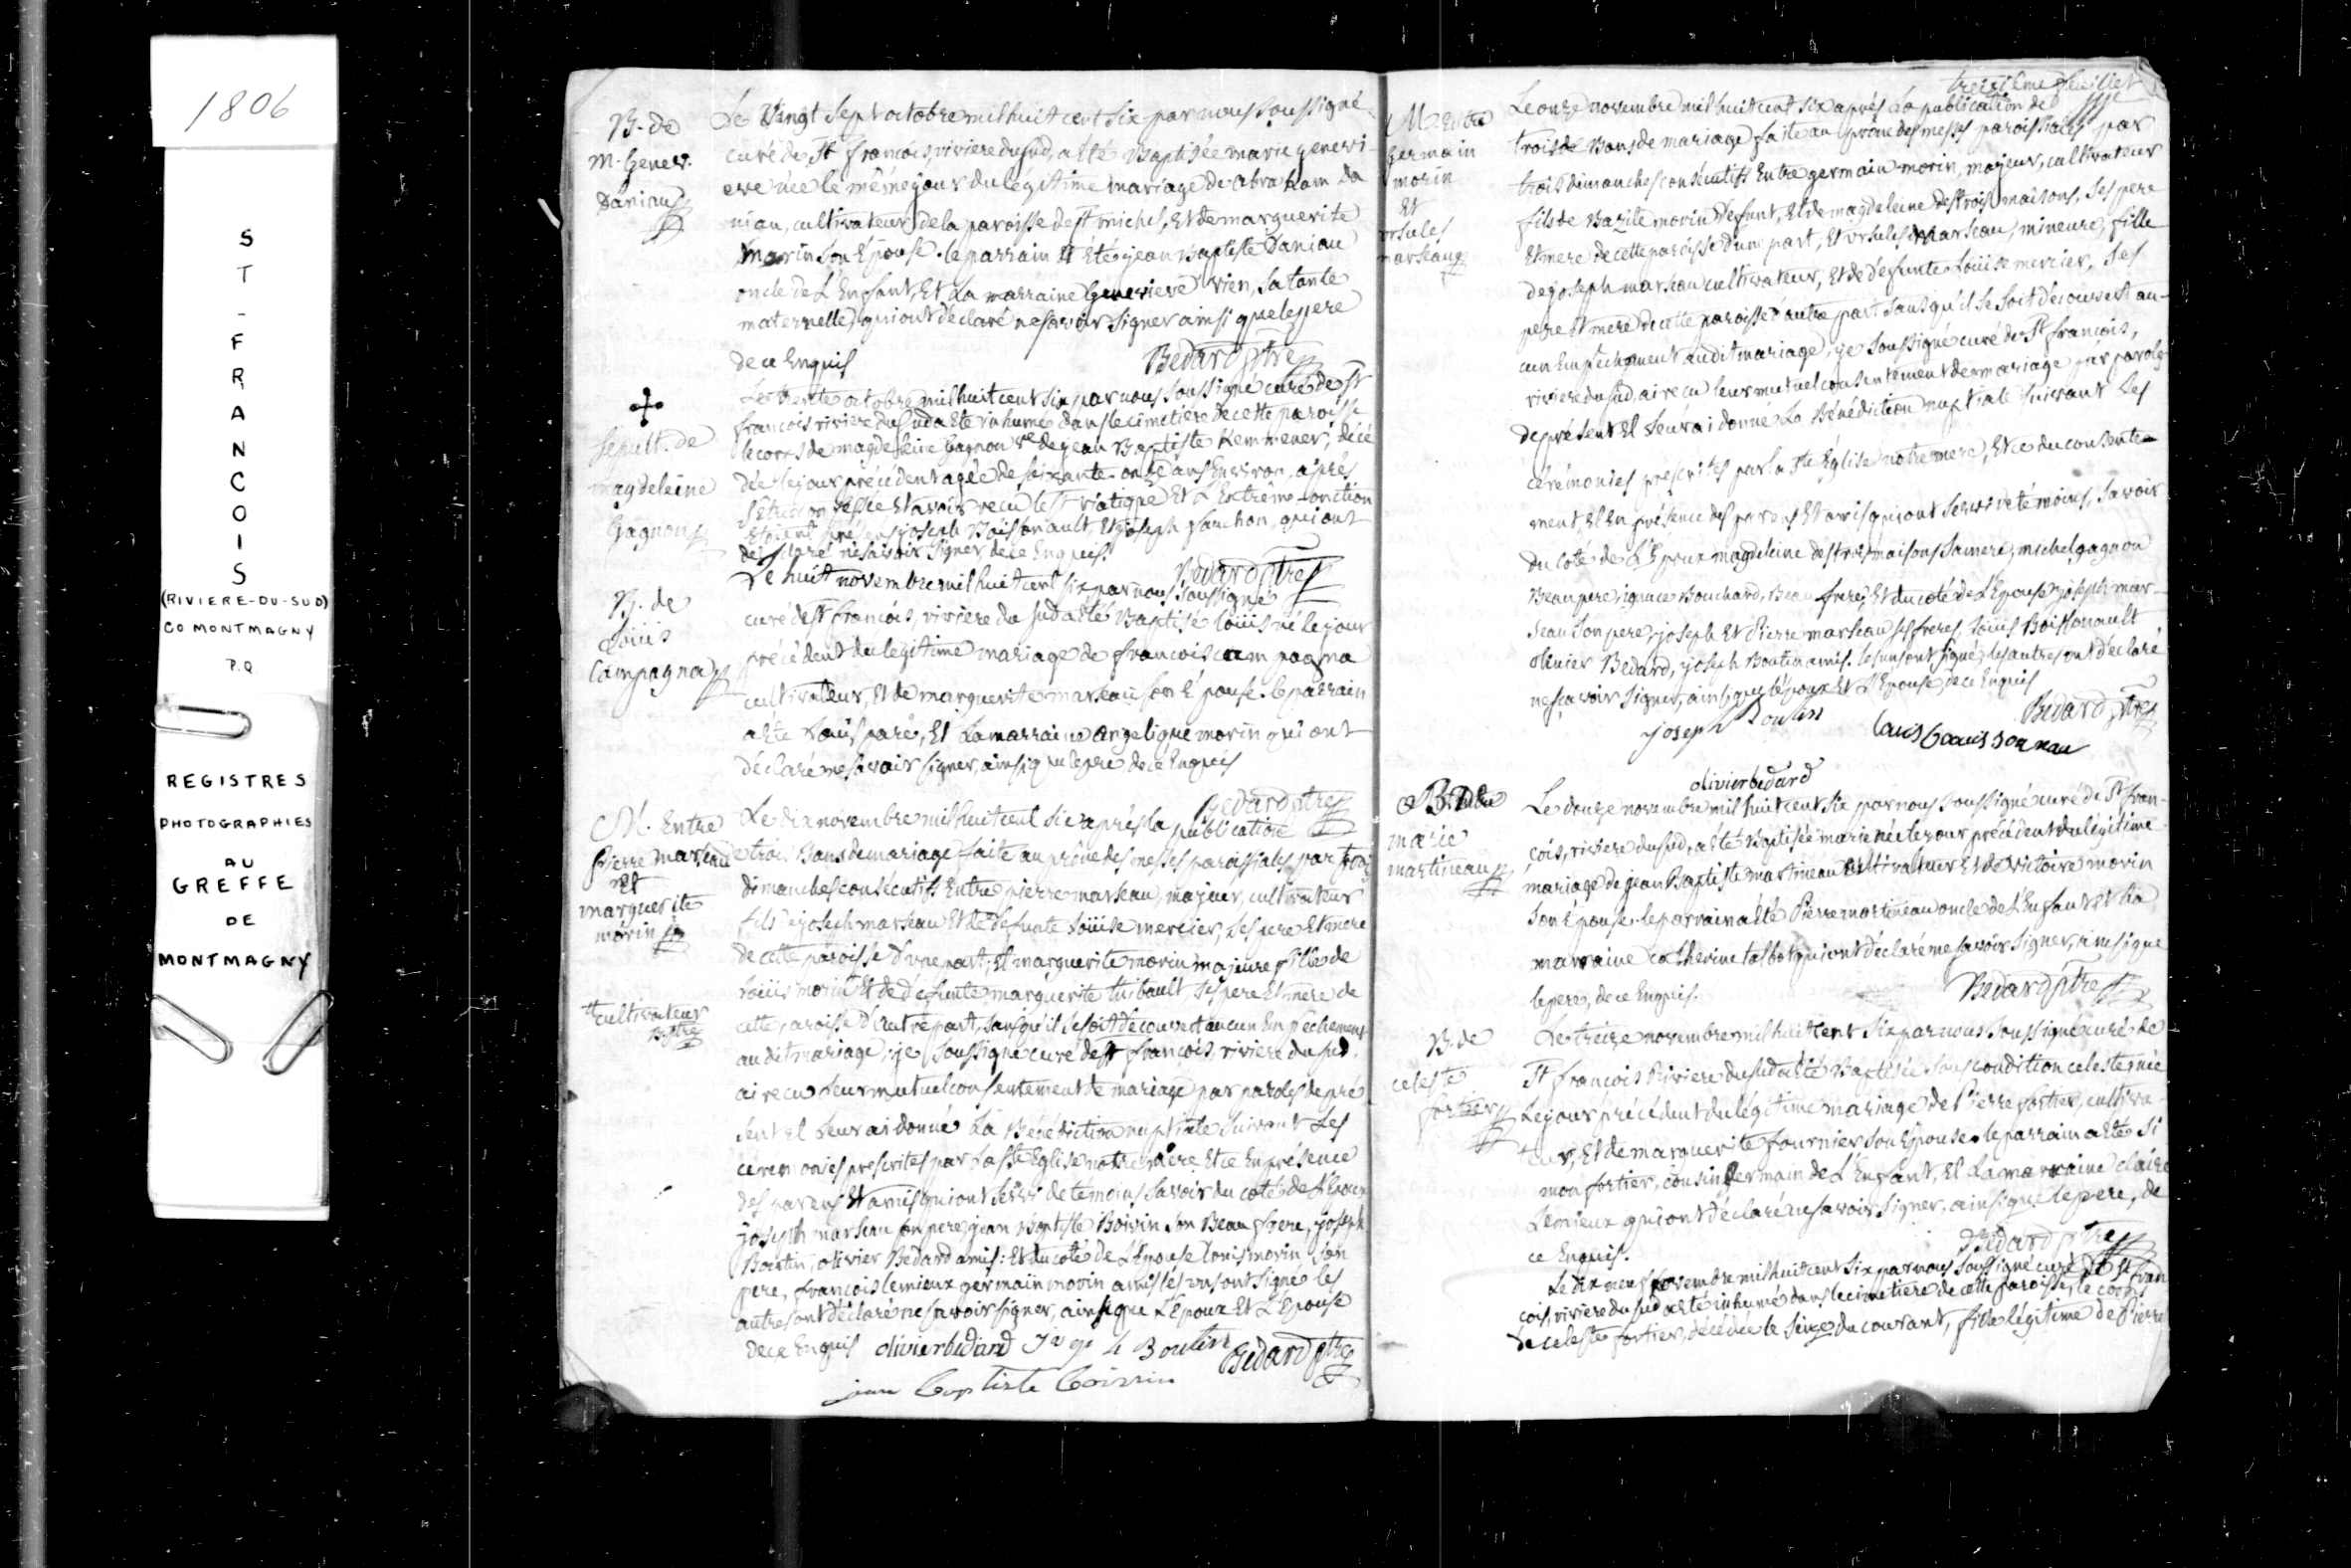 1806
S
T
-
F
R
A
N
C
O
I
S
(RIVIERE-DU-SUD)
CO MONTMAGNY
P.Q
REGISTRES
PHOTOGRAPHIES
AU
GREFFE
DE
MONTMAGNY
B. de
M. Genev.
Daniau
Le Vingt Sept octobre mil huit cent Six par nous Soussigné
curé de St françois, riviere du Sud, a été Baptisée marie genevi-
eve née le même jour du légitime mariage de abraham da
niau, cultivateur de la paroisse de St michel, Et de marguerite
morin Son Epouse. le parrain a Été jean Baptiste Daniau
oncle de L'Enfant, Et La marraine Genevieve rien, Sa tante
maternelle qui ont declaré ne savoir Signer ainsi que le pere
de ce Enquis
Bedard ptre
Sepult. de
magdeleine
Gagnon
Le trente octobre mil huit cent Six par nous Soussigné curé de St
françois riviere du Sud a Eté inhumé dans le cimetiere de cette paroisse
le corps de magdeleine Gagnon ve de jean Baptiste Kemmener, décé
dée le jour précédent agée de Soixante-onze ans Environ, après
S'être confessée Et avoir recu le St viatique Et L'Extrême-onction
Etoient présens joseph Boissonault, Et joseph fauchon, qui ont
declaré ne savoir Signer de ce Enquis.
Bedard ptre
B. de
Louis
Campagna
Le huit novembre mil huit cent Six par nous Soussigné
curé de St françois, riviere du Sud a été Baptisé Louis né le jour
précédent du légitime mariage de françois campagna
cultivateur, Et de marguerite marseau Son Epouse. le parrain
a Eté Louis paré, Et La marraine angelique morin qui ont
déclaré ne savoir Signer, ainsi que le pere de ce Enquis
Bedard ptre
M. Entre
pierre marseau
Et
marguerite
morin
Le dix novembre mil huit cent Six après la publication
de trois Bans de mariage faite au prône des messes paroissiales par trois
dimanches consécutifs Entre pierre marseau, majeur, cultivateur
fils de joseph marseau Et de Defunte Louise mercier, Ses pere Et mere
de cette paroisse d'une part, Et marguerite morin majeure fille de
Louis morin Et de Defunte marguerite thibault Ses pere Et mere de
cultivateur
B ptre
cette paroisse d'autre part, Sans qu'il Se soit decouvert aucun Empêchement
au dit mariage, je Soussigné curé de St françois, riviere du Sud.
ai recu Leur mutuel consentement de mariage par paroles de pré
sent Et Leur ai donné La Bénédiction nuptiale Suivant Les
ceremonies prescrites par La Ste Eglise notre mere Et ce En présence
des parens Et amis qui ont Servi de temoins Savoir du coté de l'Epoux
joseph marseau Son pere, jean Baptiste Boivin Son Beau frere, joseph
Boutin, olivier Bedard amis: Et du coté de L'Epouse Louis morin Son
pere, françois Lemieux germain morin amis les uns ont Signé les
autres ont declaré ne savoir Signer, ainsi que L'Epoux Et L'Epouse
de ce Enquis olivier bedard Boutin Bedard ptre
jean baptiste boivin
treizième feuillet
M. Entre
Germain
morin
Et
ursule
marseau
Le onze novembre mil huit cent Six après La publication de
trois Bans de mariage faite au prône des messes paroissiales par
trois dimanches consécutifs Entre germain morin, majeur, cultivateur
fils de Bazile morin Defunt, Et de magdeleine destroismaisons, Ses pere
Et mere de cette paroisse d'une part, Et ursule marseau, mineure, fille
de joseph marseau cultivateur, Et de Défunte Louise mercier, Ses
pere Et mere de cette paroisse d'autre part Sans qu'il Se Soit découvert au-
cun Empêchement au dit mariage, je Soussigné curé de St françois,
riviere du Sud, ai recu leur mutuel consentement de mariage par paroles
de présent Et Leur ai donné La Bénédiction nuptiale Suivant Les
cérémonies prescrites par La Ste Église notre mere, Et ce du consente-
ment Et En présence des parens Et amis qui ont Servi de témoins, Savoir
du coté de L'Epoux magdeleine destroismaisons Sa mere, michel gagnon
Beau pere, ignace Bouchard, Beau frere, Et du coté de L'Epouse joseph mar-
seau Son pere, joseph Et Pierre marseau Ses freres, Louis Boissonault
olivier Bedard, joseph Boutin amis. les uns ont Signé, les autres ont déclaré
ne savoir Signer, ainsi que l'époux Et L'Epouse, de ce Enquis
Bedard ptre
joseph Boutin
olivier bedard
B. de
marie
martineau
Le douze novembre mil huit cent Six par nous Soussigné curé de St fran-
çois, riviere du Sud, a été Baptisée marie née le jour précédent du légitime
mariage de jean Baptiste martineau cultivateur Et de victoire morin
Son Épouse. le parrain a été Pierre martineau oncle de L'Enfant, Et La
marraine Catherine talbot qui ont déclaré ne savoir Signer, ainsi que
le pere, de ce Enquis.
Bedard ptre
B. de
celeste
fortier
Le treize novembre mil huit cent Six par nous Soussigné curé de
St françois Riviere du Sud a été Baptisée Sous condition celeste née
Le jour précédent du légitime mariage de Pierre fortier, cultiva-
teur, Et de marguerite fournier Son Epouse. le parrain a Eté Si
mon fortier, cousin Germain de L'Enfant, Et La marraine claire
Lemieux qui ont déclaré ne savoir Signer, ainsi que le pere, de
ce Enquis.
Bedard ptre
Le dix neuf Novembre mil huit cent Six par nous Soussigné curé de St fran
çois, riviere du Sud a Eté inhumé dans le cimetiere de cette paroisse, le corps
de celeste fortier, décédée le Seize du courant, fille légitime de Pierre